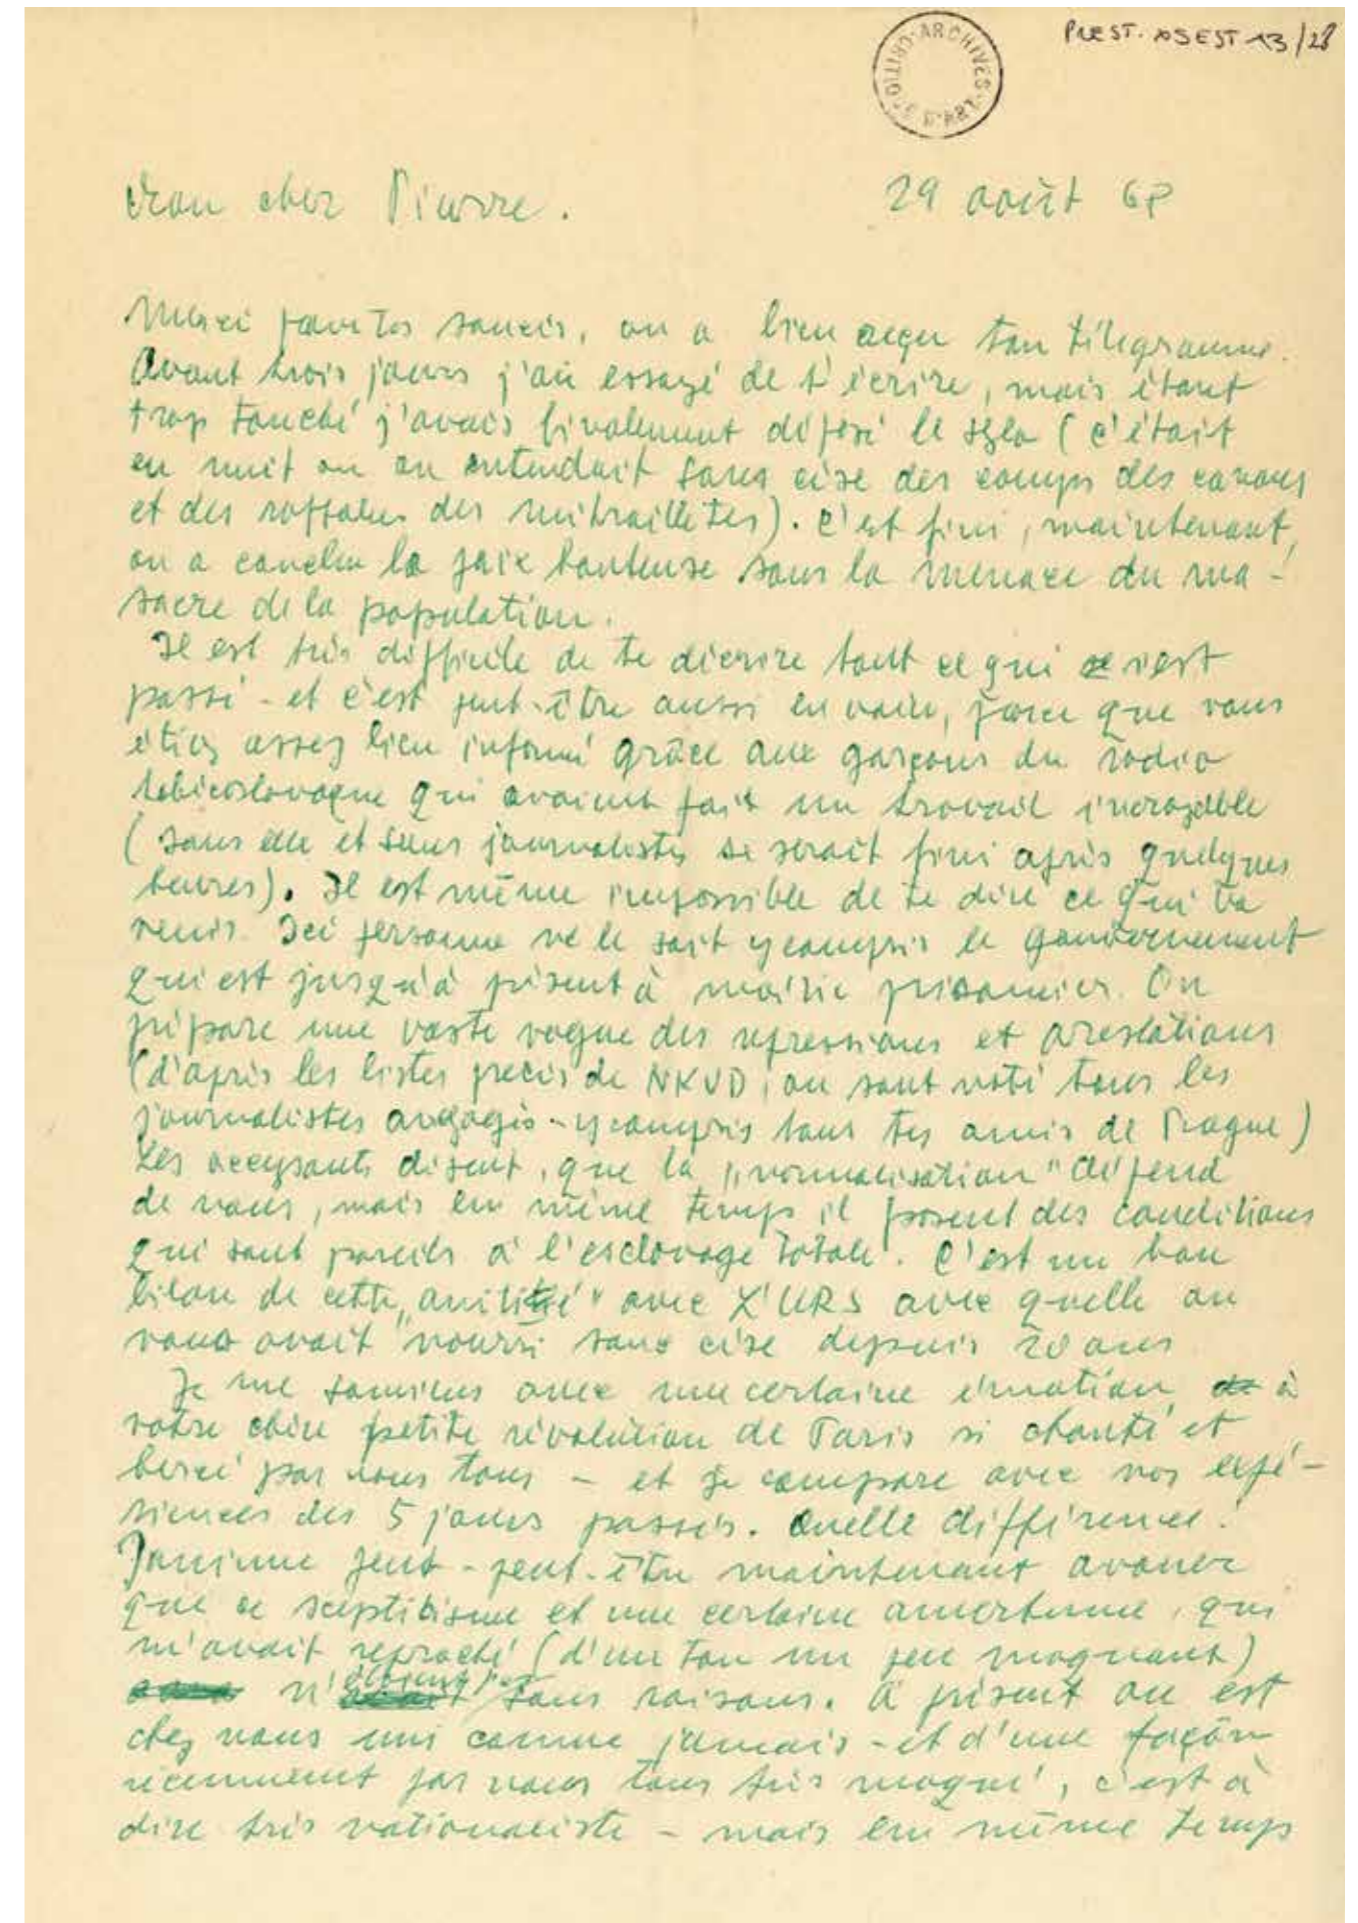 PREST. XSEST 13/28
ARCHIVES
Mon cher Pierre.
29 août 68
Merci pour tes soucis, on a bien reçu ton télégramme.
Avant trois jours j'ai essayé de t'écrire, mais étant
trop touché j'avais finalement déposé le stylo (c'était
en nuit on on entendait sans cèse des coups des canons
et des raffales des mitraillètes). C'est fini, maintenant,
on a conclu la paix honteuse sous la menace du ma-
sacre de la population.
Il est très difficile de te décrire tout ce qui s'est
passé - et c'est peut-être aussi en vain, parce que vous
étiez assez bien informé grâce aux garçons du radio
tchécoslovaque qui avaient fait un travail incroyable
(sans elle et sans journalistes se serait fini après quelques
heures). Il est même impossible de te dire ce qui va
venir. Ici personne ne le sait y compris le gouvernement
qui est jusqu'à présent à moitié prisonnier. On
prépare une vaste vague des repressions et arestations
(d'après les listes precis de NKVD, ou sont noté tous les
journalistes angagés - y compris tous tes amis de Prague)
Les occupants disent, que la "normalisation" dépend
de nous, mais en même temps il posent des conditions
qui sont pareils à l'esclavage totale. C'est un bon
bilan de cette "amitié" avec L'URS avec quelle on
nous avait nourri sans cèse depuis 20 ans
Je me souviens avec une certaine émotion, à
votre chère petite révolution de Paris si chanté et
bercé par nous tous - et je compare avec nos expé-
riences des 5 jours passés. Quelle différence!
peut-peut-être maintenant avouer
que ce sceptisisme et une certaine amertume, qui
m'avait reproché (d'un ton un peu moquant)
n'étaient pas sans raisons. À présent on est
chez nous uni comme jamais - et d'une façon
récemment par nous tous très moqué, c'est à
dire très nationaliste - mais en même temps